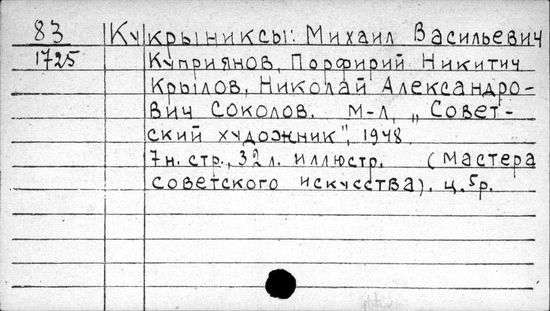 83 Кукрыниксы: Михаил Васильевич
1725 Куприянов, Порфирий Никитич
Крылов, Николай Александро-
вич Соколов. М-Л, „Совет-
ский художник", 1948.
7н. стр., 32 л. иллюстр. (Мастера
советского искусства). ц. 5р.